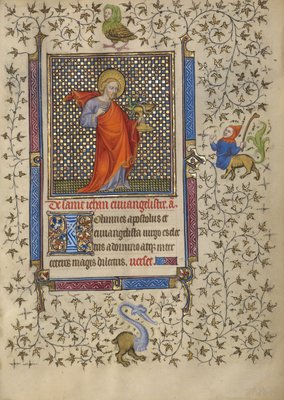 De saint iehan euuangeliste. a.
Iohannes apostolus et
euuangelista uirgo est elec
tus a domino atqz inter
ceteros magis dilectus. verset.